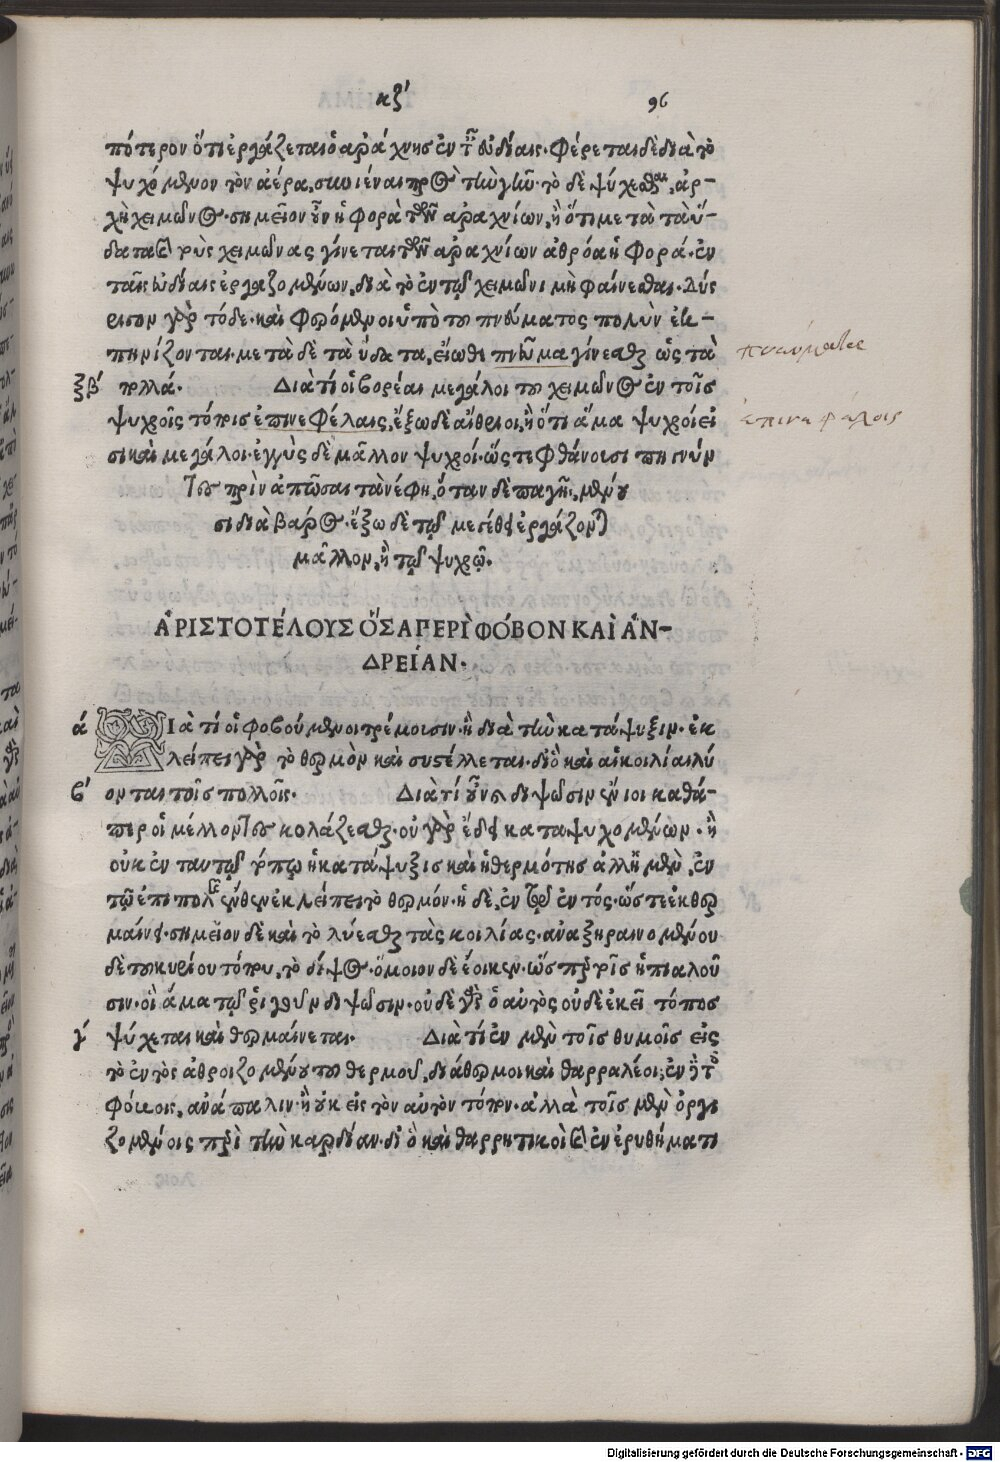 κζʹ
96
πότερον ὅτι ἐργάζεται ὁ ἀράχνης ἐν ταῖς εὐδίαις· φέρεται δὲ διὰ τὸ
ψυχόμενον τὸν ἀέρα, συνιέναι πρὸς τὴν γῆν· τὸ δὲ ψύχεσθαι, ἀρ-
χὴ χειμῶνος· σημεῖον οὖν ἡ φορὰ τῶν ἀραχνίων, ἢ ὅτι μετὰ τὰ ὕ-
δατα καὶ τοὺς χειμῶνας γίνεται τῶν ἀραχνίων ἀθρόα ἡ φορά· ἐν
ταῖς εὐδίαις ἐργαζομένων, διὰ τὸ ἐν τῷ χειμῶνι μὴ φαίνεσθαι· δύς
ριγον γὰρ τόδε· καὶ φερόμενοι ὑπὸ τοῦ πνεύματος πολὺν ἐκ-
πηνίζονται· μετὰ δὲ τὰ ὕδατα, εἴωθε πνεῦμα γίνεσθαι ὡς τὰ
πνεύματα
ξβʹ πολλά. Διὰ τί οἱ βορέαι μεγάλοι τοῦ χειμῶνος ἐν τοῖς
ψυχροῖς τόποις ἐπινεφέλαις, ἔξω δὲ αἴθριοι, ἢ ὅτι ἅμα ψυχροί εἰ
ἐπινεφέλοις
σι καὶ μεγάλοι· ἐγγὺς δὲ μᾶλλον ψυχροί· ὥστε φθάνουσι πηγνύν
τες πρὶν ἀπῶσαι τὰ νέφη, ὅταν δὲ παγῇ, μένου
σι διὰ βάρος· ἔξω δὲ τῷ μεγέθει ἐργάζονται
μᾶλλον, ἢ τῷ ψυχρῷ.
ἈΡΙΣΤΟΤΕΛΟΥΣ ὍΣΑ ΠΕΡῚ ΦΌΒΟΝ ΚΑῚ ἈΝ-
ΔΡΕΊΑΝ.
ά ΔΙΑ τί οἱ φοβούμενοι τρέμουσιν· ἢ διὰ τὴν κατάψυξιν· ἐκ
λείπει γὰρ τὸ θερμὸν καὶ συστέλλεται· διὸ καὶ αἱ κοιλίαι λύ
βʹ ονται τοῖς πολλοῖς. Διὰ τί οὖν διψῶσιν ἔνιοι καθά-
περ οἱ μέλλοντες κολάζεσθαι· οὐ γὰρ ἔδει καταψυχομένων· ἢ
οὐκ ἐν ταυτῷ τόπῳ ἡ κατάψυξις καὶ ἡ θερμότης ἀλλ' ἡ μὲν, ἐν
τῷ ἐπιπολῆς ἔνθεν ἐκλείπει τὸ θερμόν· ἡ δὲ, ἐν τῷ ἐντός· ὥστε ἐκθερ
μαίνει· σημεῖον δὲ καὶ τὸ λύεσθαι τὰς κοιλίας· ἀναξηραινομένου
δὲ τοῦ κυρίου τόπου, τὸ δίψος· ὅμοιον δὲ ἔοικεν· ὥσπερ τοῖς ἠπιαλοῦ
σιν· οἳ ἅμα τῷ ῥιγοῦν διψῶσιν· οὐδὲ γὰρ ὁ αὐτὸς οὐδὲ ἐκεῖ τόπος
γʹ ψύχεται καὶ θερμαίνεται. Διὰ τί ἐν μὲν τοῖς θυμοῖς εἰς
τὸ ἐντὸς ἀθροιζομένου τοῦ θερμοῦ, διάθερμοι καὶ θαρραλέοι, ἐν δὲ τοῖς
φόβοις, ἀνάπαλιν· ἢ οὐκ εἰς τὸν αὐτὸν τόπον· ἀλλὰ τοῖς μὲν ὀργι
ζομένοις περὶ τὴν καρδίαν· διὸ καὶ θαρρητικοὶ καὶ ἐν ἐρυθήματι
Digitalisierung gefördert durch die Deutsche Forschungsgemeinschaft - DFG